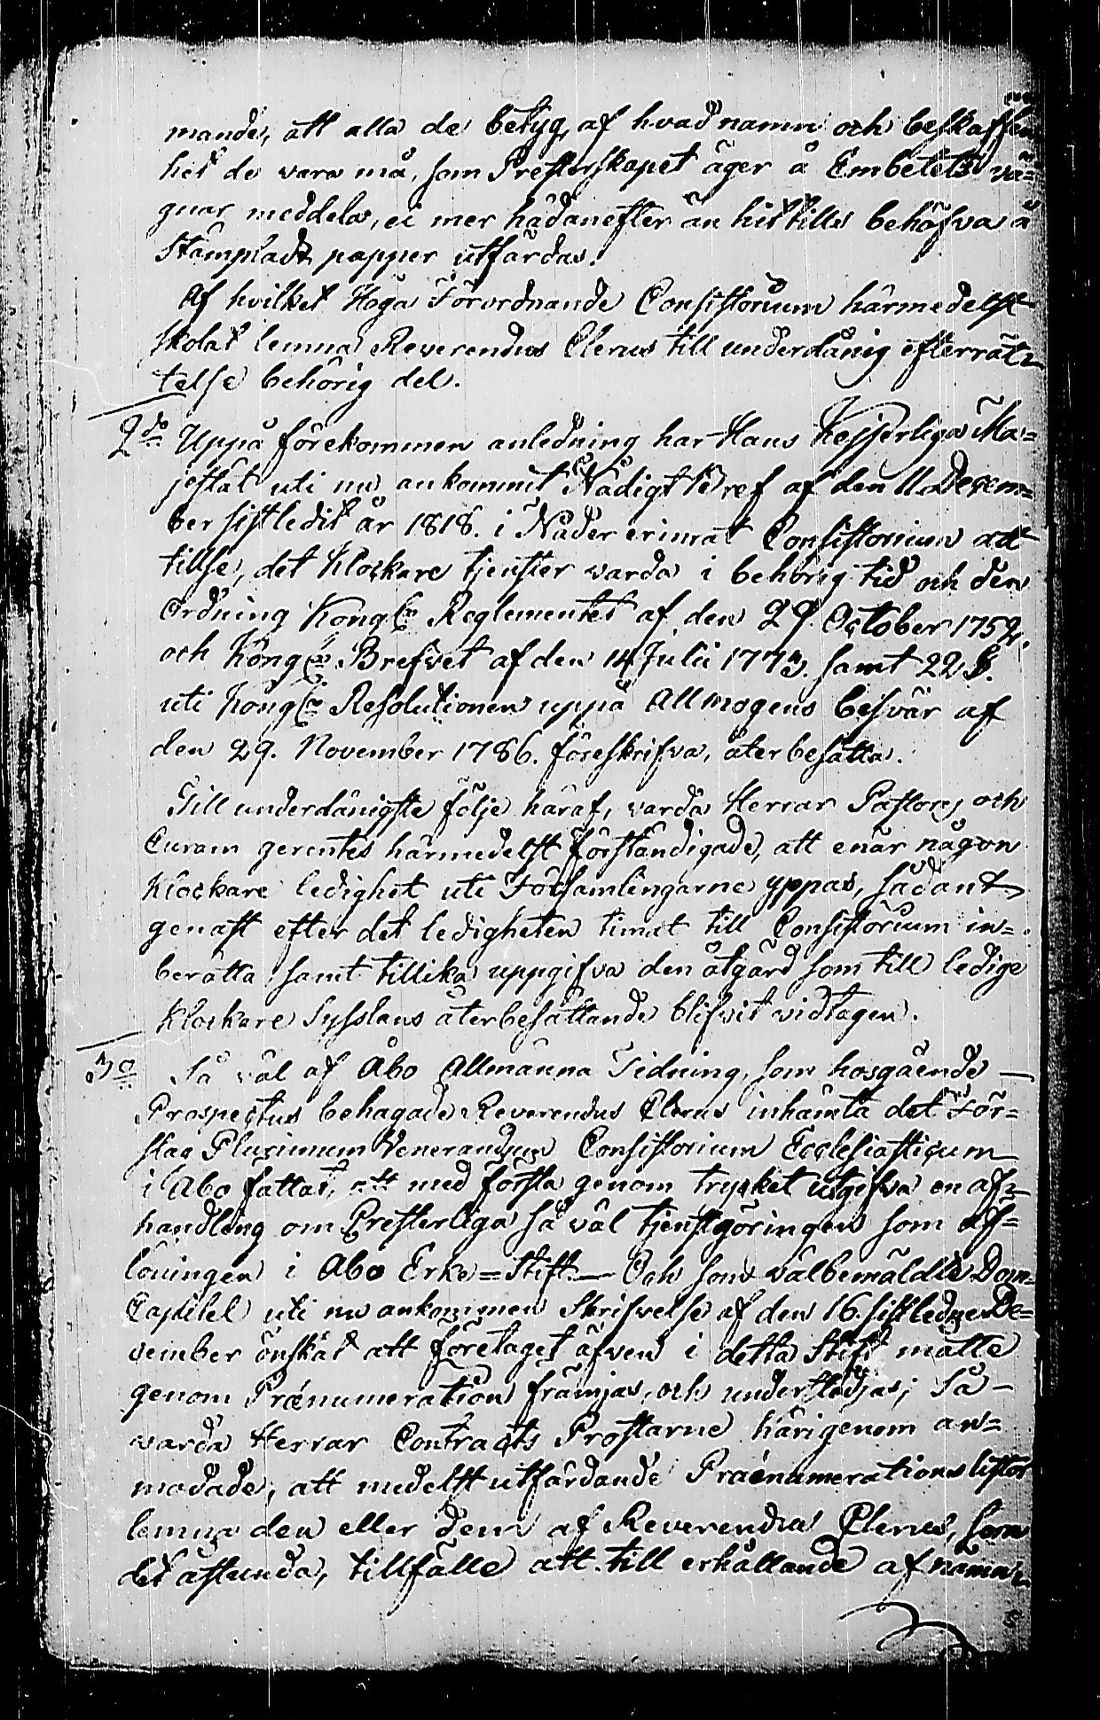 mande, att alla de betyg, af hvad namn och beskaffen
het de vara må, som Presterskapet äger å Embetets vä=
gnar meddela, ei mer hädanefter än hittills behöfva å
Stämpladt papper utfärdas.
Af hvilket Höga Förordnande Consistorium härmedelst
skolat lemna Reverendus Clerus till underdånig efterrät=
telse behörig del.
2do Uppå förekommen anledning har Hans Kejserliga Ma=
jestät uti nu ankommit Nådigt Bref af den 11 Decem=
ber sistledit år 1818. i Nåder erinrat Consistorium att
tillse, det Klockare tjenster varda i behörig tid och den
ordning Kongl. Reglementet af den 27 October 1752,
och Kongl. Brefvet af den 14 Julii 1773. samt 22 §.
uti Kongl. Resolutionen uppå Allmogens besvär af
den 29. November 1786. föreskrifva, återbesätta.
Till underdånigste följe häraf, varda Herrar Pastorer och
Curam gerentes härmedelst förständigade, att enär någon
Klockare ledighet uti Församlingarne yppas, sådant
genast efter det ledigheten timat till Consistorium in=
berätta samt tillika uppgifva den åtgärd som till ledige
Klockare Sysslans återbesättande blifvit vidtagen.
3o Så väl af Åbo Allmänna Tidning, som hosgående
Prospectus behagade Reverendus Clerus inhämta det För=
slag Plurimum Venerandum Consistorium Ecclesiasticum
i Åbo fattat, att med första genom trycket utgifva en af=
handling om Presterliga så väl tjenstgöringen som af=
löningen i Åbo Erke=Stift. — Och som välbemäldte Dom=
Capitel uti nu ankommen Skrifvelse af den 16. sistledne De=
cember önskat att företaget äfven i detta Stift måtte
genom Prænumeration främjas, och understödjas; Så —
varda Herrar Contracts Prostarne härigenom an=
modade, att medelst utfärdande Prænumerations listor
lemna den eller dem af Reverendus Clerus, som
det åstunda, tillfälle att till erhållande af nämn=